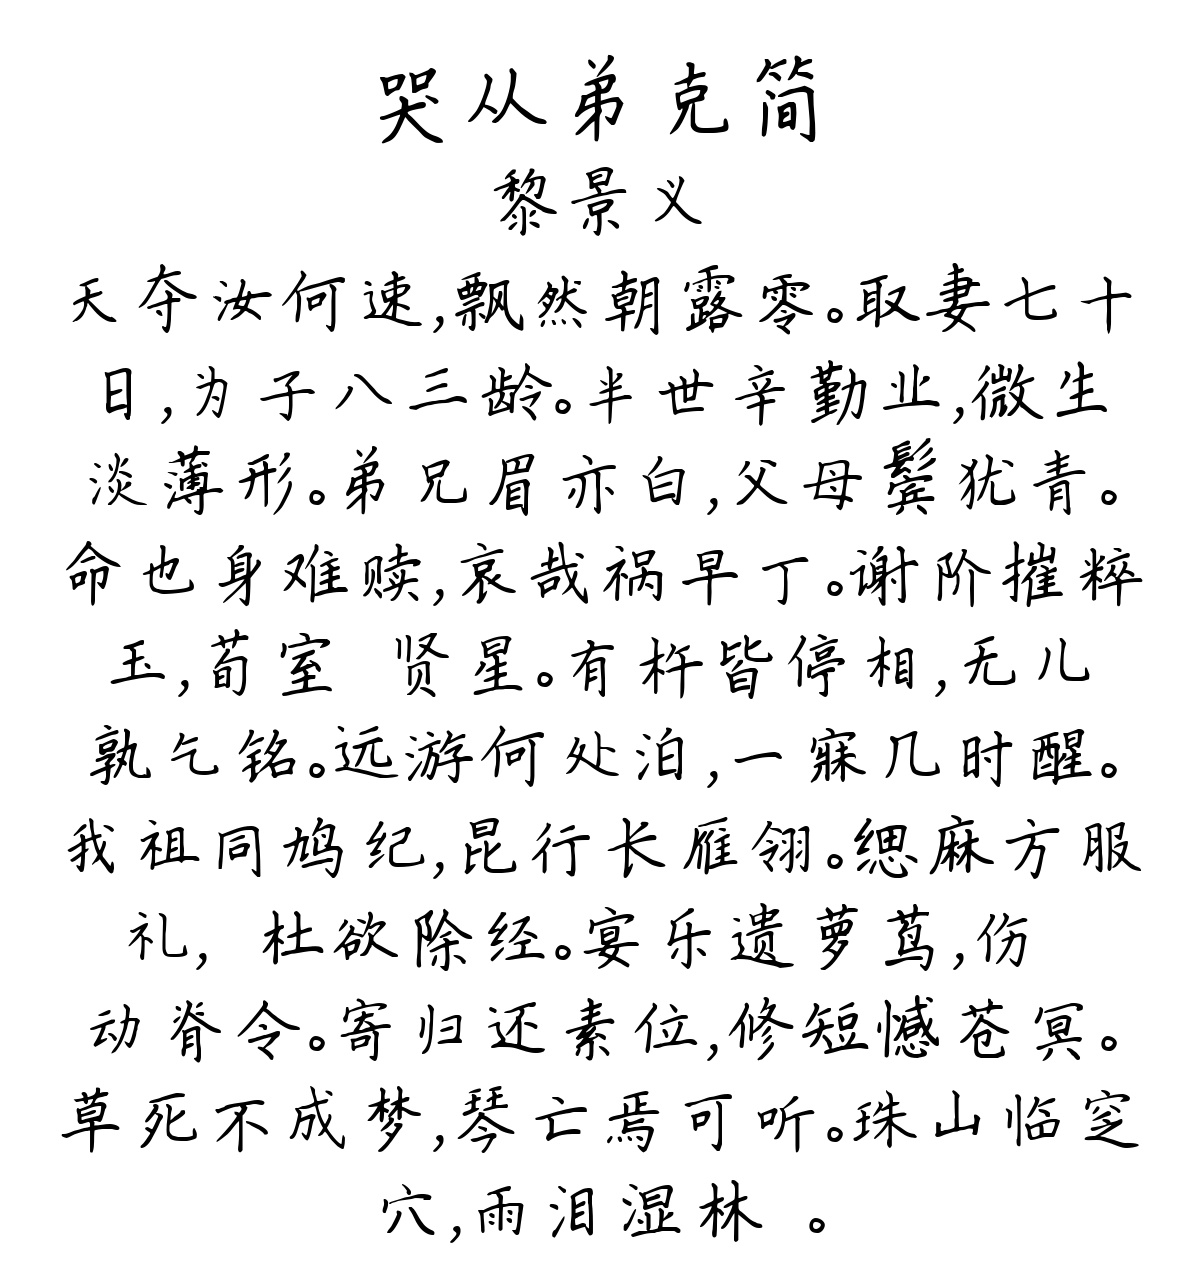 哭从弟克简
黎景义
天夺汝何速,飘然朝露零。取妻七十
日,为子八三龄。半世辛勤业,微生
淡薄形。弟兄眉亦白,父母鬓犹青。
命也身难赎,哀哉祸早丁。谢阶摧粹
玉,荀室 贤星。有杵皆停相,无儿
孰乞铭。远游何处泊,一寐几时醒。
我祖同鸠纪,昆行长雁翎。缌麻方服
礼, 杜欲除经。宴乐遗萝茑,伤
动脊令。寄归还素位,修短憾苍冥。
草死不成梦,琴亡焉可听。珠山临窆
穴,雨泪湿林 。